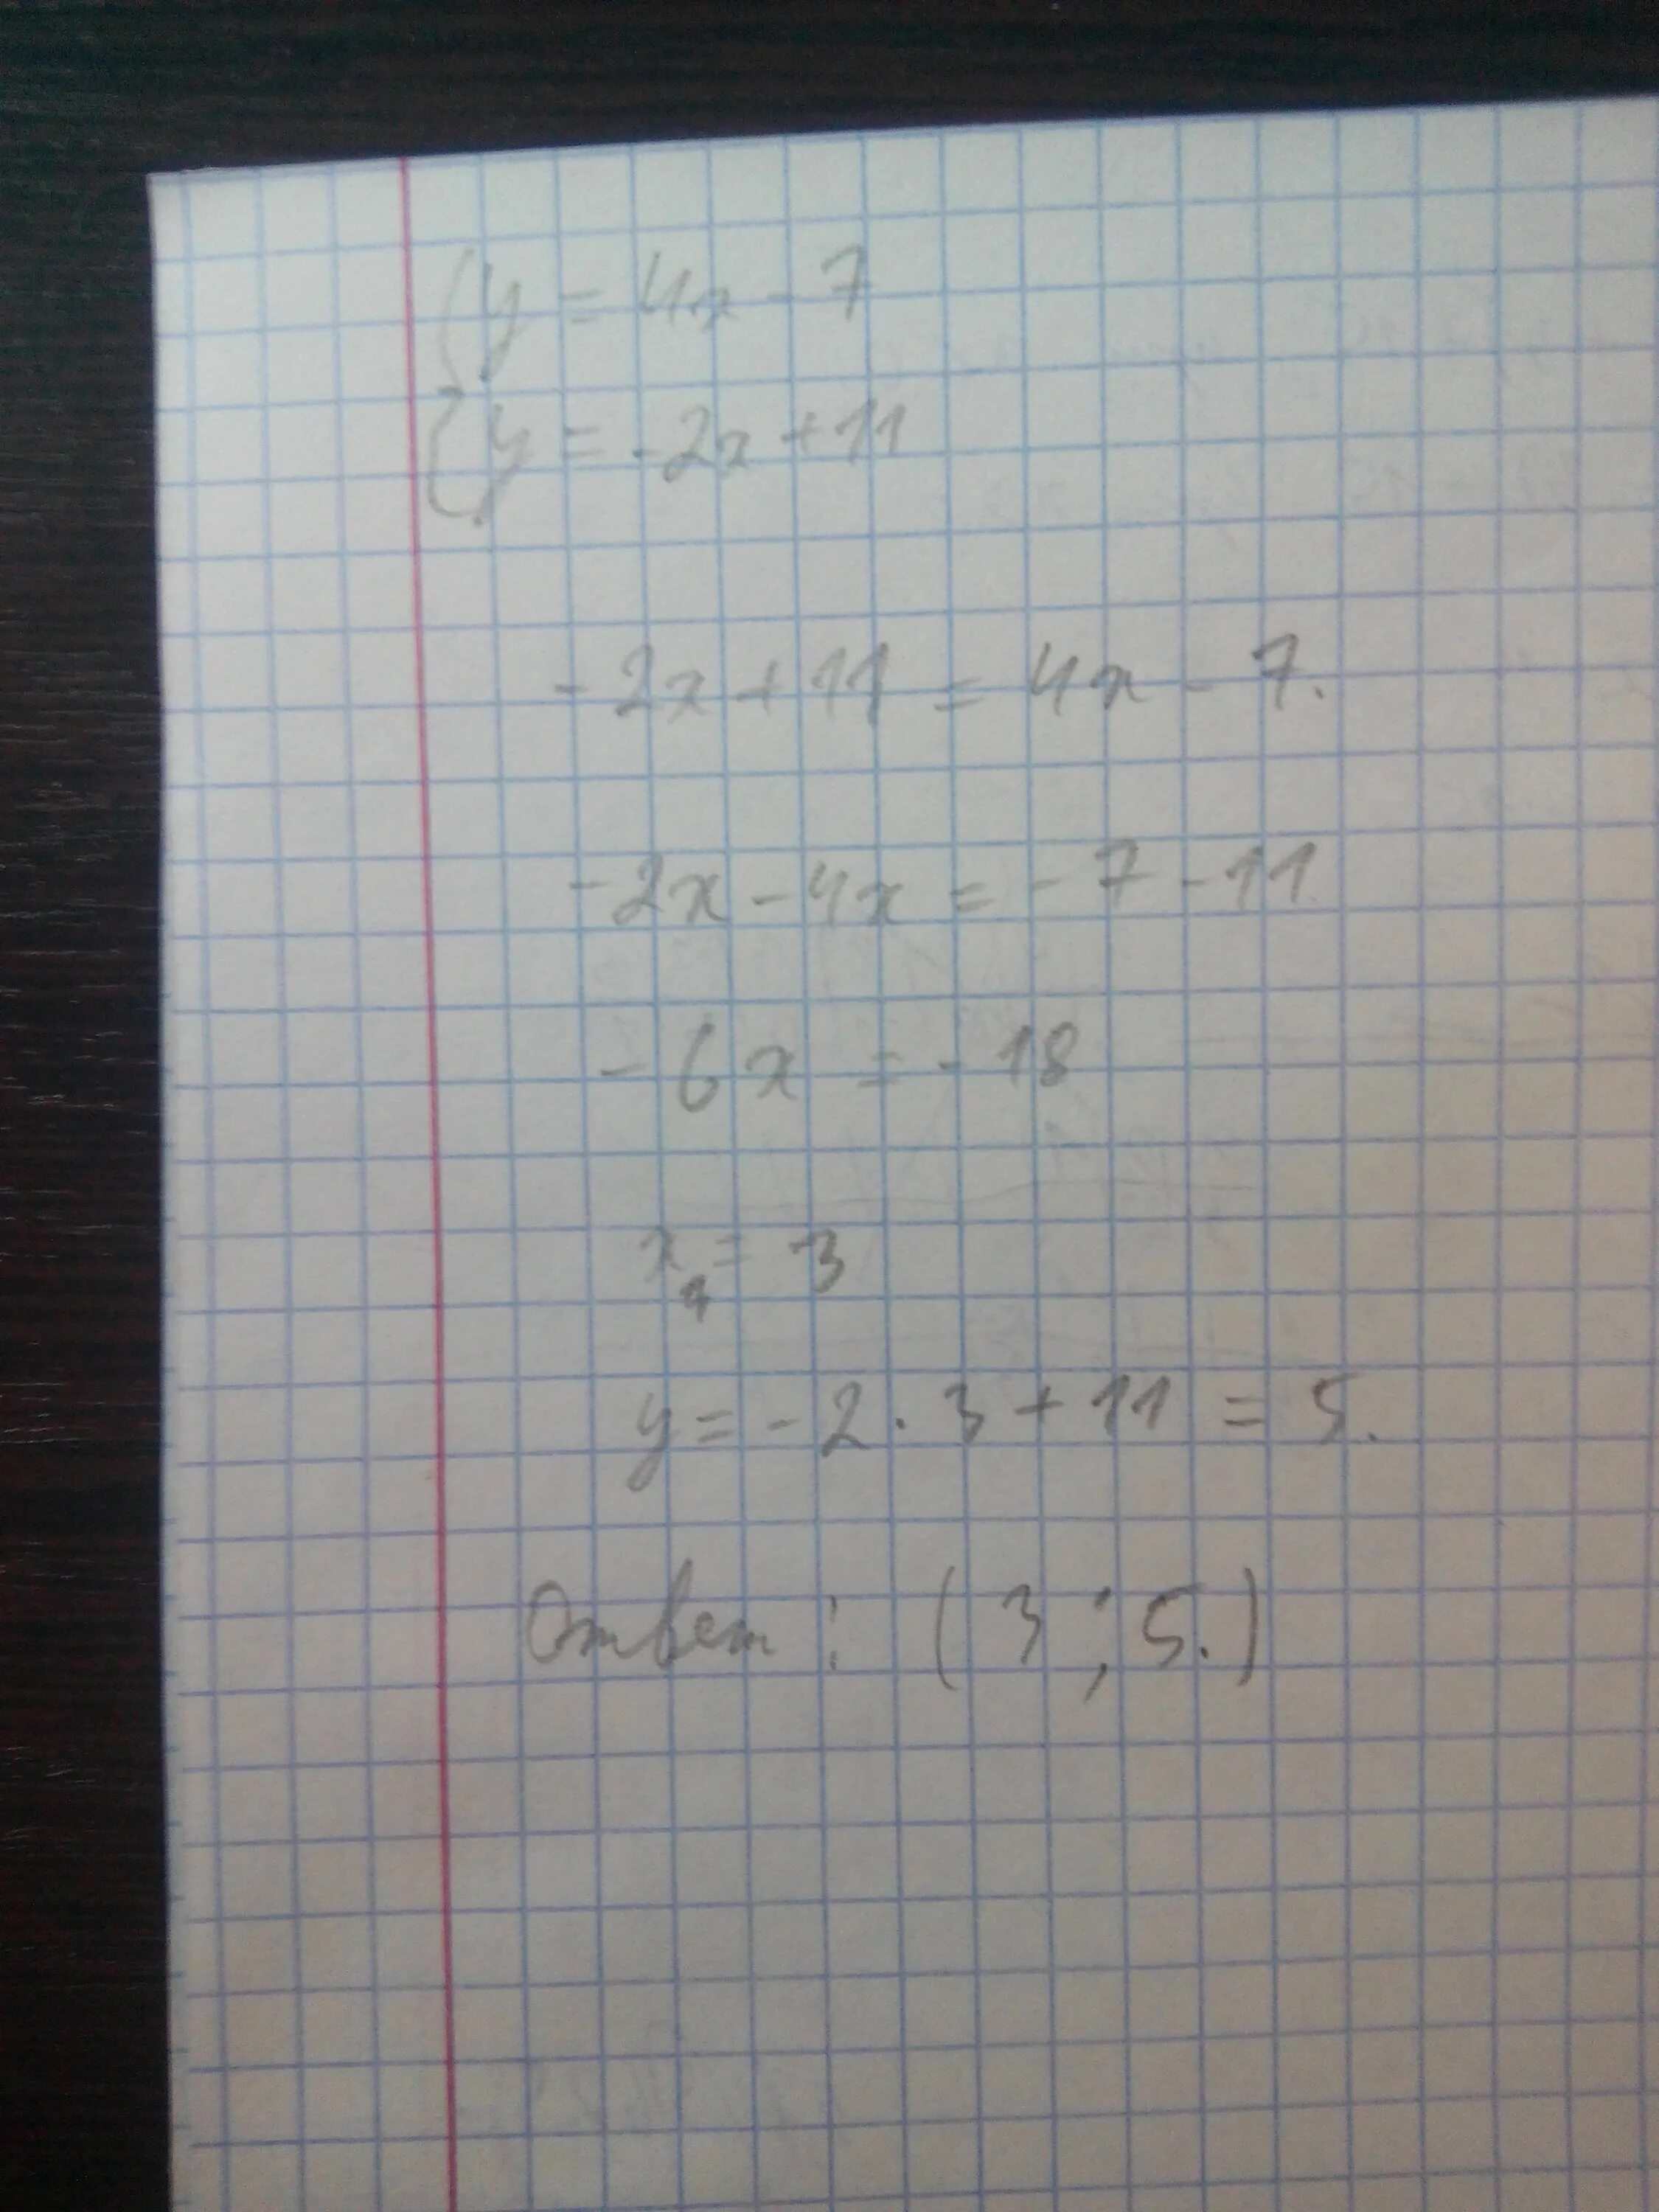 {y = 4x - 7
{y = -2x + 11
-2x + 11 = 4x - 7.
-2x - 4x = -7 - 11.
-6x = -18
x = 3
y = -2 · 3 + 11 = 5.
Ответ : (3 ; 5.)